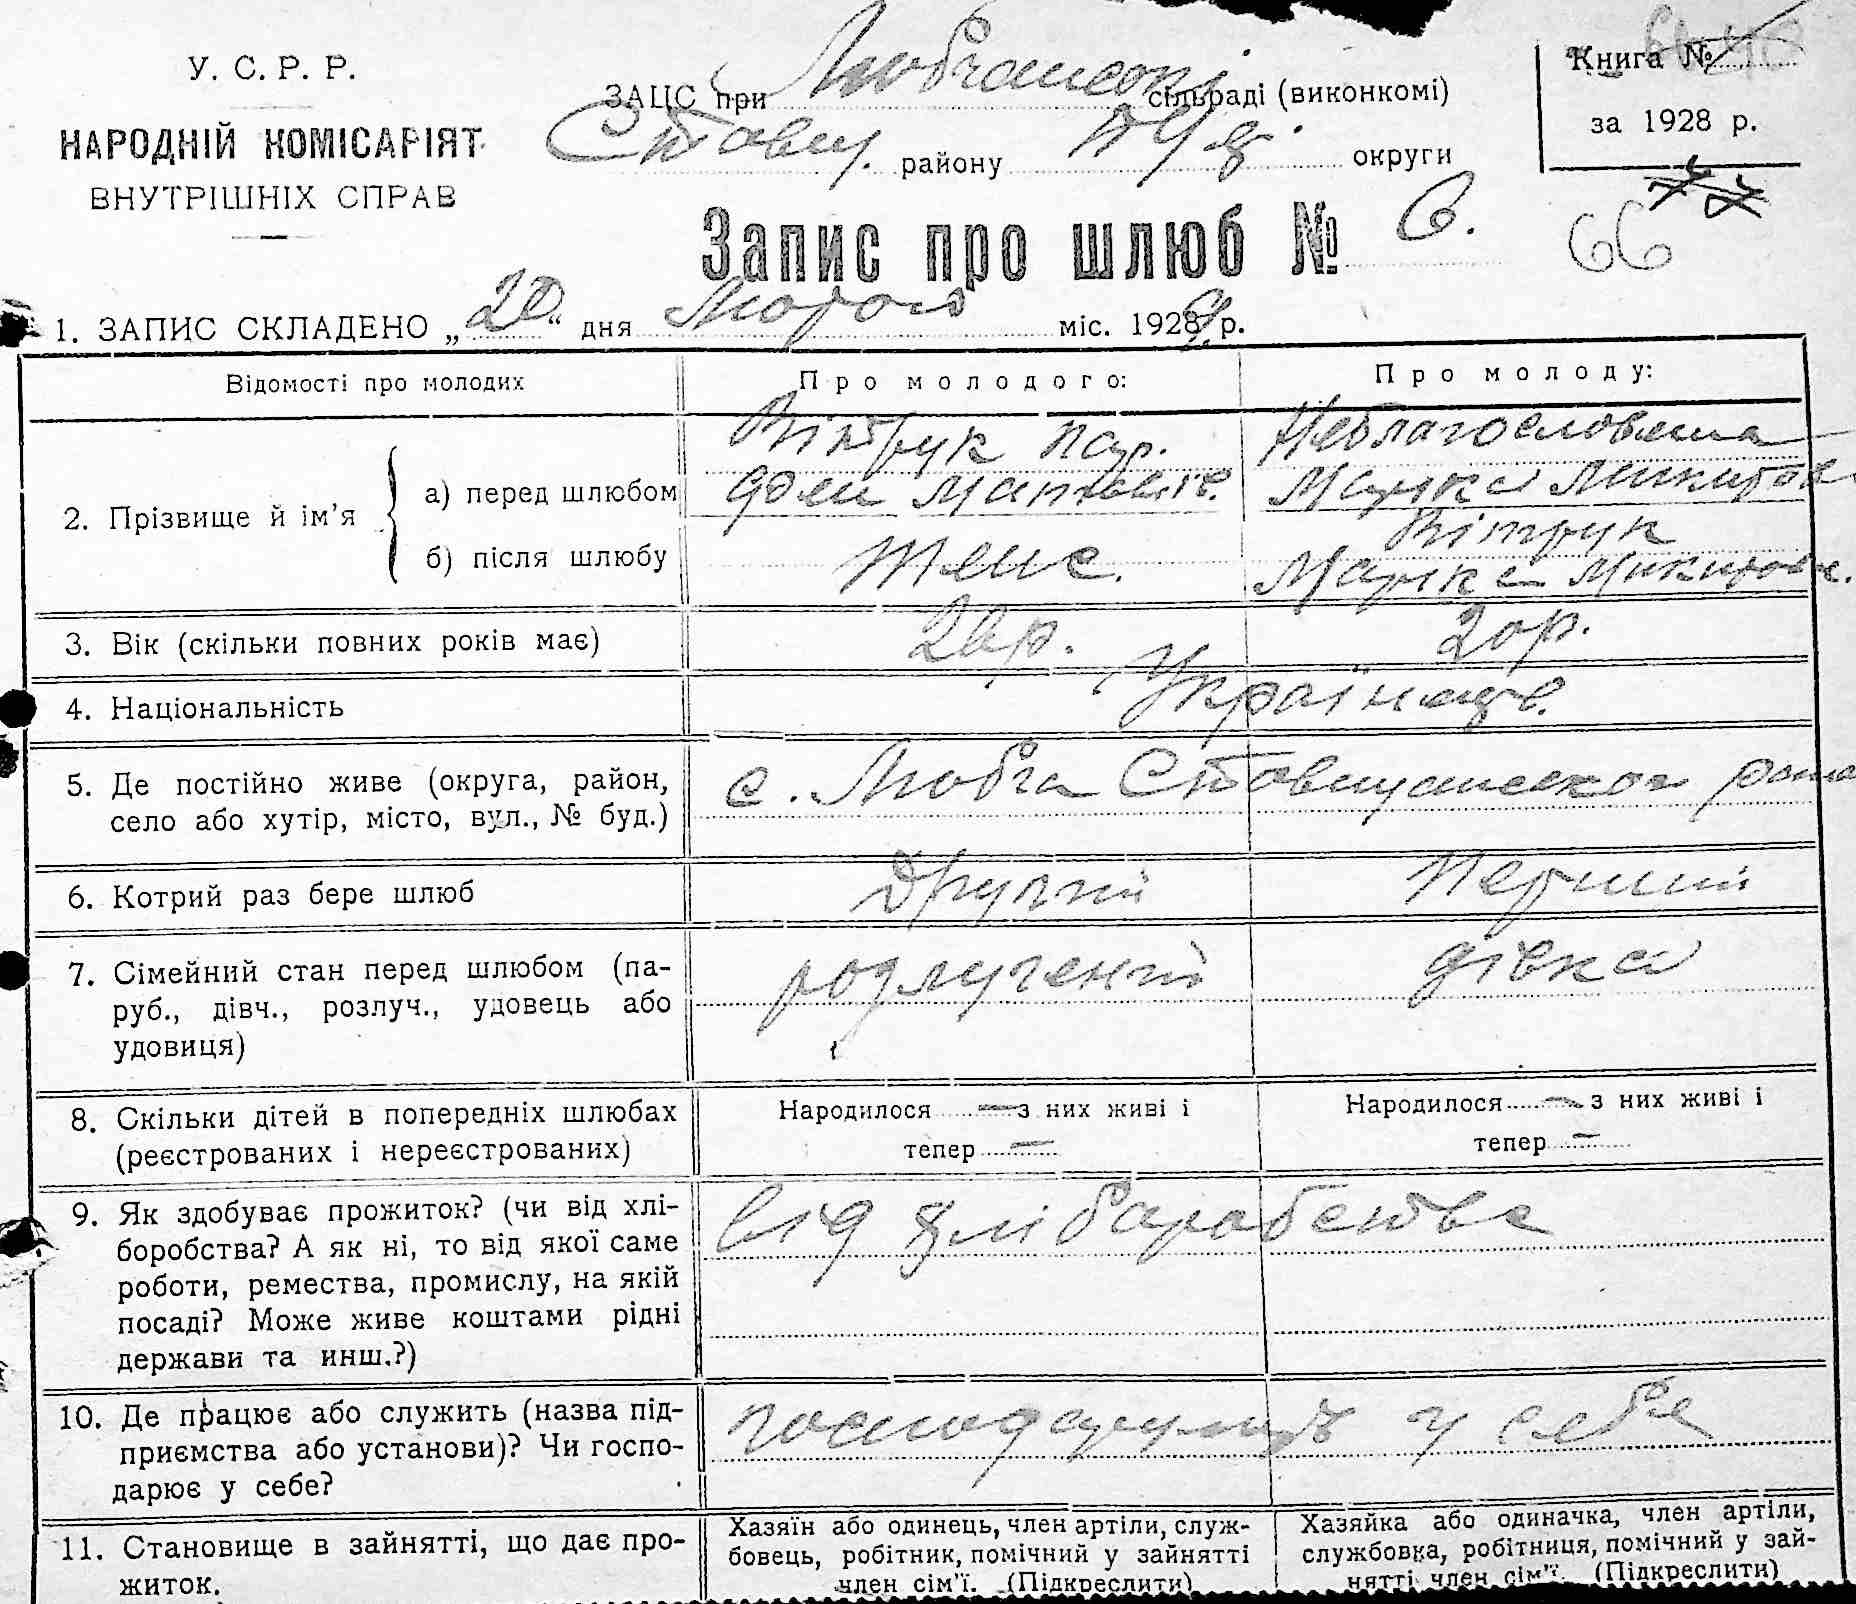 У. С. Р. Р.
НАРОДНІЙ КОМІСАРІЯТ
ВНУТРІШНІХ СПРАВ
ЗАЦС при Любчанській сільраді (виконкомі)
Ставищ. району БЦ округи
Книга №
за 1928 р.
66
Запис про шлюб № 6.
1. ЗАПИС СКЛАДЕНО „20“ дня Лютого міс. 1929 р.
Відомості про молодих
Про молодого:
Про молоду:
2. Прізвище й ім’я
а) перед шлюбом
б) після шлюбу
Вітрук
Неблагословена
Микитов
Теж
Вітрук
Микитовна
3. Вік (скільки повних років має)
20р.
4. Національність
Українці
5. Де постійно живе (округа, район,
село або хутір, місто, вул., № буд.)
с. Любча Ставищанського району
6. Котрий раз бере шлюб
Другий
Перший
7. Сімейний стан перед шлюбом (па-
руб., дівч., розлуч., удовець або
удовиця)
розлучений
дівка
8. Скільки дітей в попередніх шлюбах
(реєстрованих і нереєстрованих)
Народилося — з них живі і
тепер —
Народилося — з них живі і
тепер —
9. Як здобуває прожиток? (чи від хлі-
боробства? А як ні, то від якої саме
роботи, ремества, промислу, на якій
посаді? Може живе коштами рідні
держави та инш.?)
від хліборобства
10. Де працює або служить (назва під-
приємства або установи)? Чи госпо-
дарює у себе?
господарують у себе
11. Становище в зайнятті, що дає про-
житок.
Хазяїн або одинець, член артіли, служ-
бовець, робітник, помічний у зайнятті
член сім’ї. (Підкреслити)
Хазяйка або одиначка, член артіли,
службовка, робітниця, помічний у зай-
нятті член сім’ї. (Підкреслити)